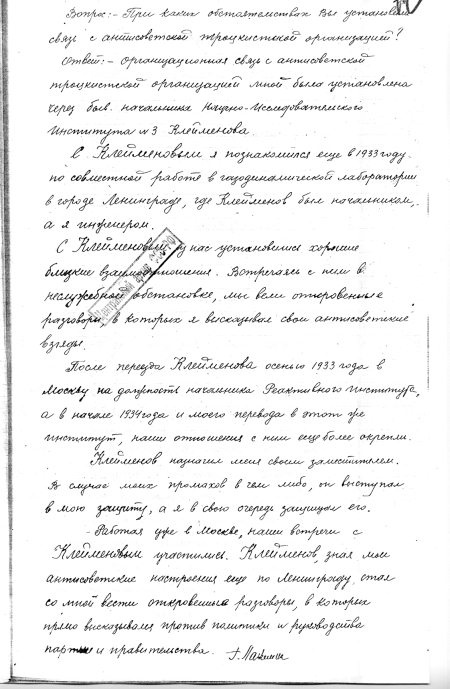 Вопрос:- При каких обстоятельствах Вы установили
связь с антисоветской троцкистской организацией?
Ответ:- организационная связь с антисоветской
троцкистской организацией мной была установлена
через быв. начальника Научно-Исследовательского
Института №3 Клейменова.
С Клейменовым я познакомился еще в 1933 году
по совместной работе в газодинамической лаборатории
в городе Ленинграде, где Клейменов был начальником,
а я инженером.
С Клейменовым у нас установились хорошие
близкие взаимоотношения. Встречаясь с ним в
неслужебной обстановке, мы вели откровенные
разговоры в которых я высказывал свои антисоветские
взгляды.
После переезда Клейменова осенью 1933 года в
Москву на должность начальника Реактивного института,
а в начале 1934 года и моего перевода в этот же
институт, наши отношения с ним еще более окрепли.
Клейменов назначил меня своим заместителем.
В случае моих промахов в чем либо, он выступал
в мою защиту, а я в свою очередь защищал его.
- Работая уже в Москве, наши встречи с
Клейменовым участились. Клейменов, зная мои
антисоветские настроения еще по Ленинграду, стал
со мной вести откровенные разговоры, в которых
прямо высказывался против политики и руководства
партии и правительства.